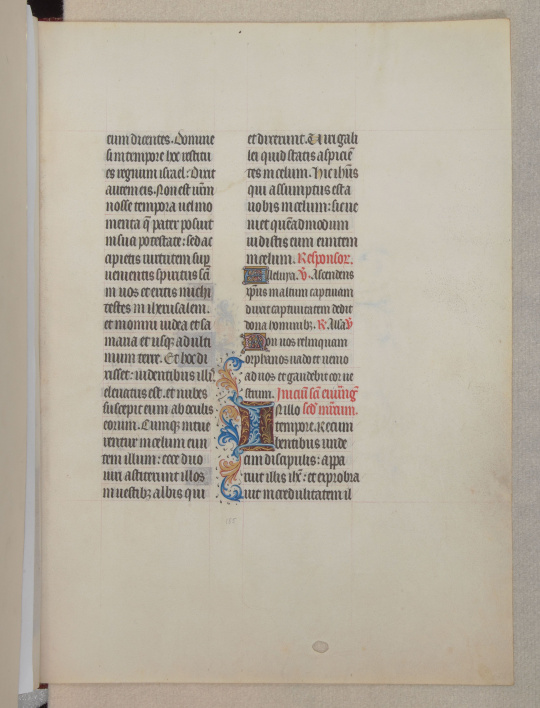 tum dicentes. Domine
si in tempore hoc restitu
es regnum israel: Dixit
autem eis. Non est ur̄m
nosse tempora uel mo
menta q̄ pater posuit
in sua potestate: sed ac
cipietis uirtutem sup
uenientis spiritus sc̄i
in uos et eritis michi
testes in iherusalem.
et in omni iudea et sa
maria et usq; ad ulti
mum terre. Et hec cū di
xisset: uidentibus illis
eleuatus est. et nubes
suscepit eum ab oculis
eorum. Cumq; intue
rentur in celum eun
tem illum: ecce duo
uiri astiterunt illos
in uestibz albis qui
et dixerunt. Uiri gali
lei quid statis aspiciē
tes in celum. Hic ih̄us
qui assumptus est a
uobis in celum: sic ue
niet quēadmodum
uidistis eum euntem
in celum. Responsor.
Alleluya. V̄. Ascendens
xp̄us in altum captiuam
duxit captiuitatem dedit
dona hominibz. R. Alla V̄
Non uos relinquam
orphanos uado et uenio
ad uos et gaudebit cor ue
strum. Iniciū sc̄i euāng
In illo scd̄ mrcum.
tempore. Recum
bentibus unde
cim discipulis: appa
ruit illis ih̄c: et exprobra
uit incredulitatem il